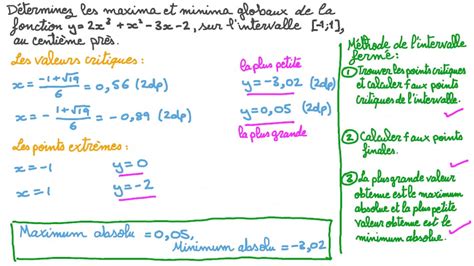 Déterminez les maxima et minima globaux de la
fonction y=2x³+x²-3x-2, sur l'intervalle [-1;1],
au centième près.
Les valeurs critiques :
x = (-1+√19)/6 = 0,56 (2dp)
x = - (1+√19)/6 = -0,89 (2dp)
la plus petite
y=-3,02 (2dp)
y=0,05 (2dp)
la plus grande
Les points extrêmes :
x=-1 y=0
x=1 y=-2
Maximum absolu = 0,05,
Minimum absolu = -3,02
Méthode de l'intervalle
fermé :
① Trouver les points critiques
et calculer f aux points
critiques de l'intervalle.
② Calculer f aux points
finales.
③ La plus grande valeur
obtenue est le maximum
absolue et la plus petite
valeur obtenue est le
minimum absolue.